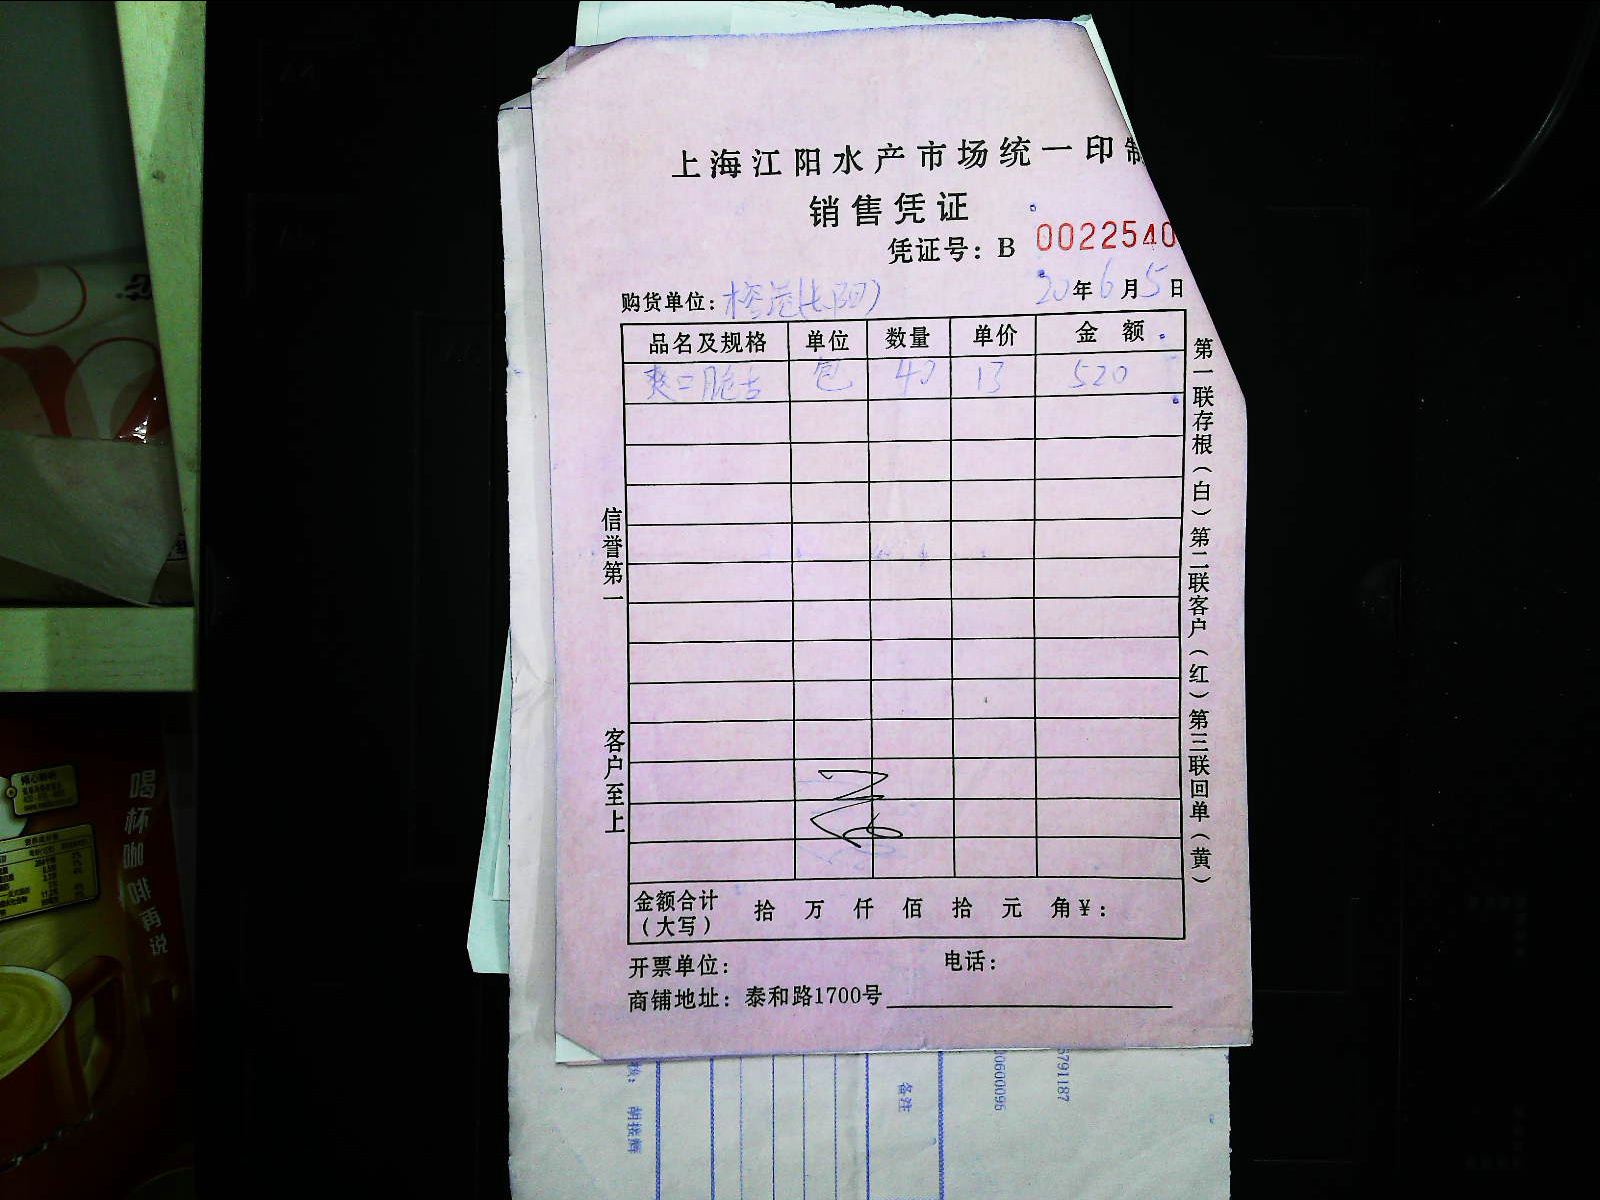 上海江阳水产市场统一印制
销售凭证
凭证号：B 0022540
购货单位：
20年6月5日
品名及规格 单位 数量 单价 金额
爽口脆 包 40 13 520
信誉第一
客户至上
第一联存根（白）第二联客户（红）第三联回单（黄）
金额合计（大写） 拾 万 仟 佰 拾 元 角 ¥：
开票单位： 电话：
商铺地址：泰和路1700号
备注
5791187
喝杯咖啡再说